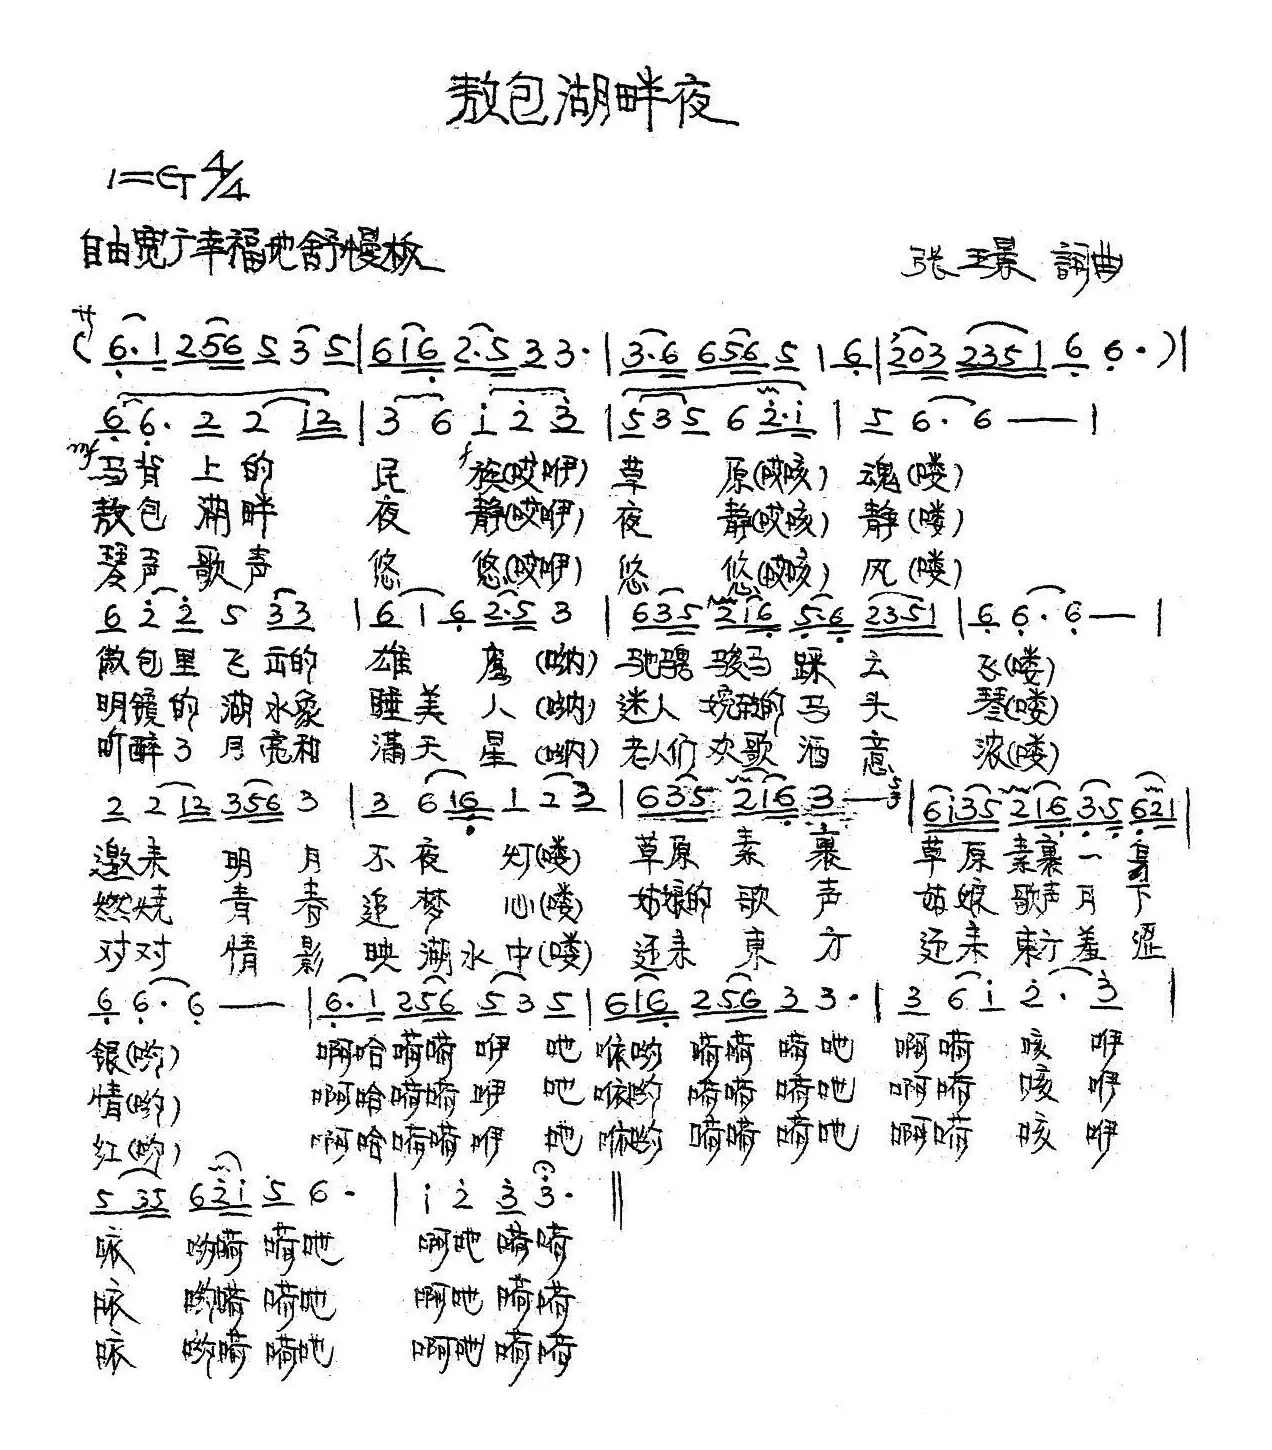 敖包湖畔夜
1=G 4/4
自由宽广幸福地舒慢板
张王景 詞曲
(6·1 256 5 3 5|616 2·5 3 3·|3·6 656 5 1 6|203 2351 6 6·)|
6 6· 2 2 12|3 6 i 2 3|535 6 2·i|5 6· 6 —|
mf 马背上的 民 f 族(哎咿) 草 原(哎咳) 魂(喽)
敖包湖畔 夜 静(哎咿) 夜 静(哎咳) 静(喽)
琴声歌声 悠 悠(哎咿) 悠 悠(哎咳) 风(喽)
6 2 2 5 33|6 1 6 2·5 3|635 216 5·6 2351|6 6· 6 —|
敖包里飞出的 雄 鹰(呐) 驰骋骏马踩云 飞(喽)
明镜的湖水象 睡美人(呐) 迷人婉转的马头 琴(喽)
听醉了月亮和 满天星(呐) 老人们欢歌酒意 浓(喽)
2 2 12 356 3|3 6 16 1 2 3|635 216 3 —|6i35 216 3·5 621|
邀来明月 不夜 灯(喽) 草原素裹 草原素裹一身
燃烧青春 追梦 心(喽) 姑娘的歌声 姑娘歌声月下
对对情影 映湖水中(喽) 还来東方 还来東方羞涩
6 6· 6 —|6·1 256 5 3 5|616 256 3 3·|3 6 i 2· 3|
银(哟) 啊哈嗬嗬咿吔 咴哟嗬嗬嗬吔 啊嗬咳咿
情(哟) 啊哈嗬嗬咿吔 咴哟嗬嗬嗬吔 啊嗬咳咿
红(哟) 啊哈嗬嗬咿吔 咴哟嗬嗬嗬吔 啊嗬咳咿
5 35 62i 5 6·|i 2 3 3·‖
咴 哟嗬嗬吔 啊吔嗬嗬
咴 哟嗬嗬吔 啊吔嗬嗬
咴 哟嗬嗬吔 啊吔嗬嗬